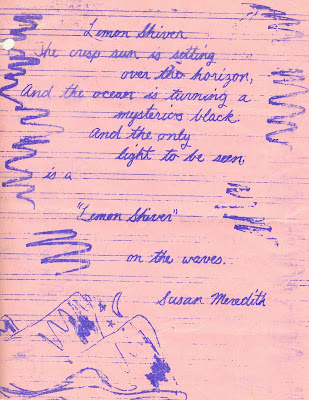 Lemon Shiver
The crisp sun is setting
over the horizon,
And the ocean is turning a
mysterios black
And the only
light to be seen
is a
"Lemon Shiver"
on the waves.
Susan Meredith